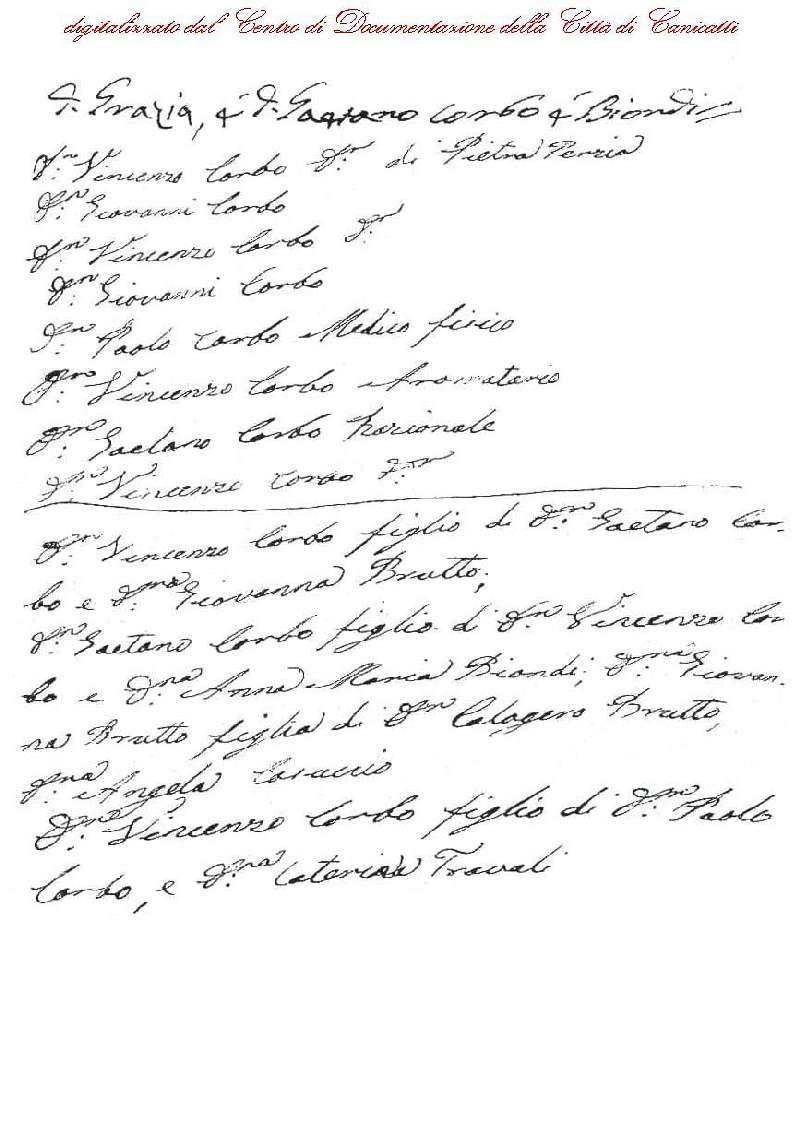 digitalizzato dal Centro di Documentazione della Città di Canicattì
D. Grazia, é D. Gaetano Corbo é Biondi
D:n Vincenzo Corbo D:r di Pietra Perzia
D:n Giovanni Corbo
D:n Vincenzo Corbo D:r
D:n Giovanni Corbo
D:n Paolo Corbo Medico fisico
D:n Vincenzo Corbo Aromatario
D:n Gaetano Corbo Razionale
D:n Vincenzo Corbo
D:n Vincenzo Corbo figlio di D:n Gaetano Cor-
bo e D:na Giovanna Brutto;
D:n Gaetano Corbo figlio di D:n Vincenzo Cor
bo e D:na Anna Maria Biondi; D:na Giovan-
na Brutto figlia di D:n Calogero Brutto,
D:na Angela
D:n Vincenzo Corbo figlio di D:n Paolo
Corbo, e D:na Caterina Travali